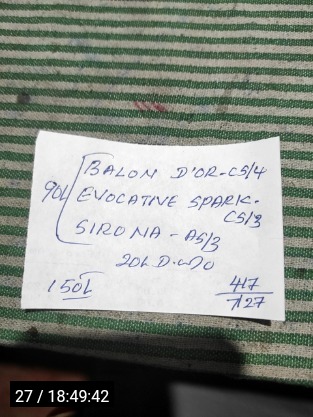 BALON D'OR-C5/4
90L EVOCATIVE SPARK-
C5/3
SIRONA - A5/3
20L D.W/O
150L
417
7127
27 / 18:49:42